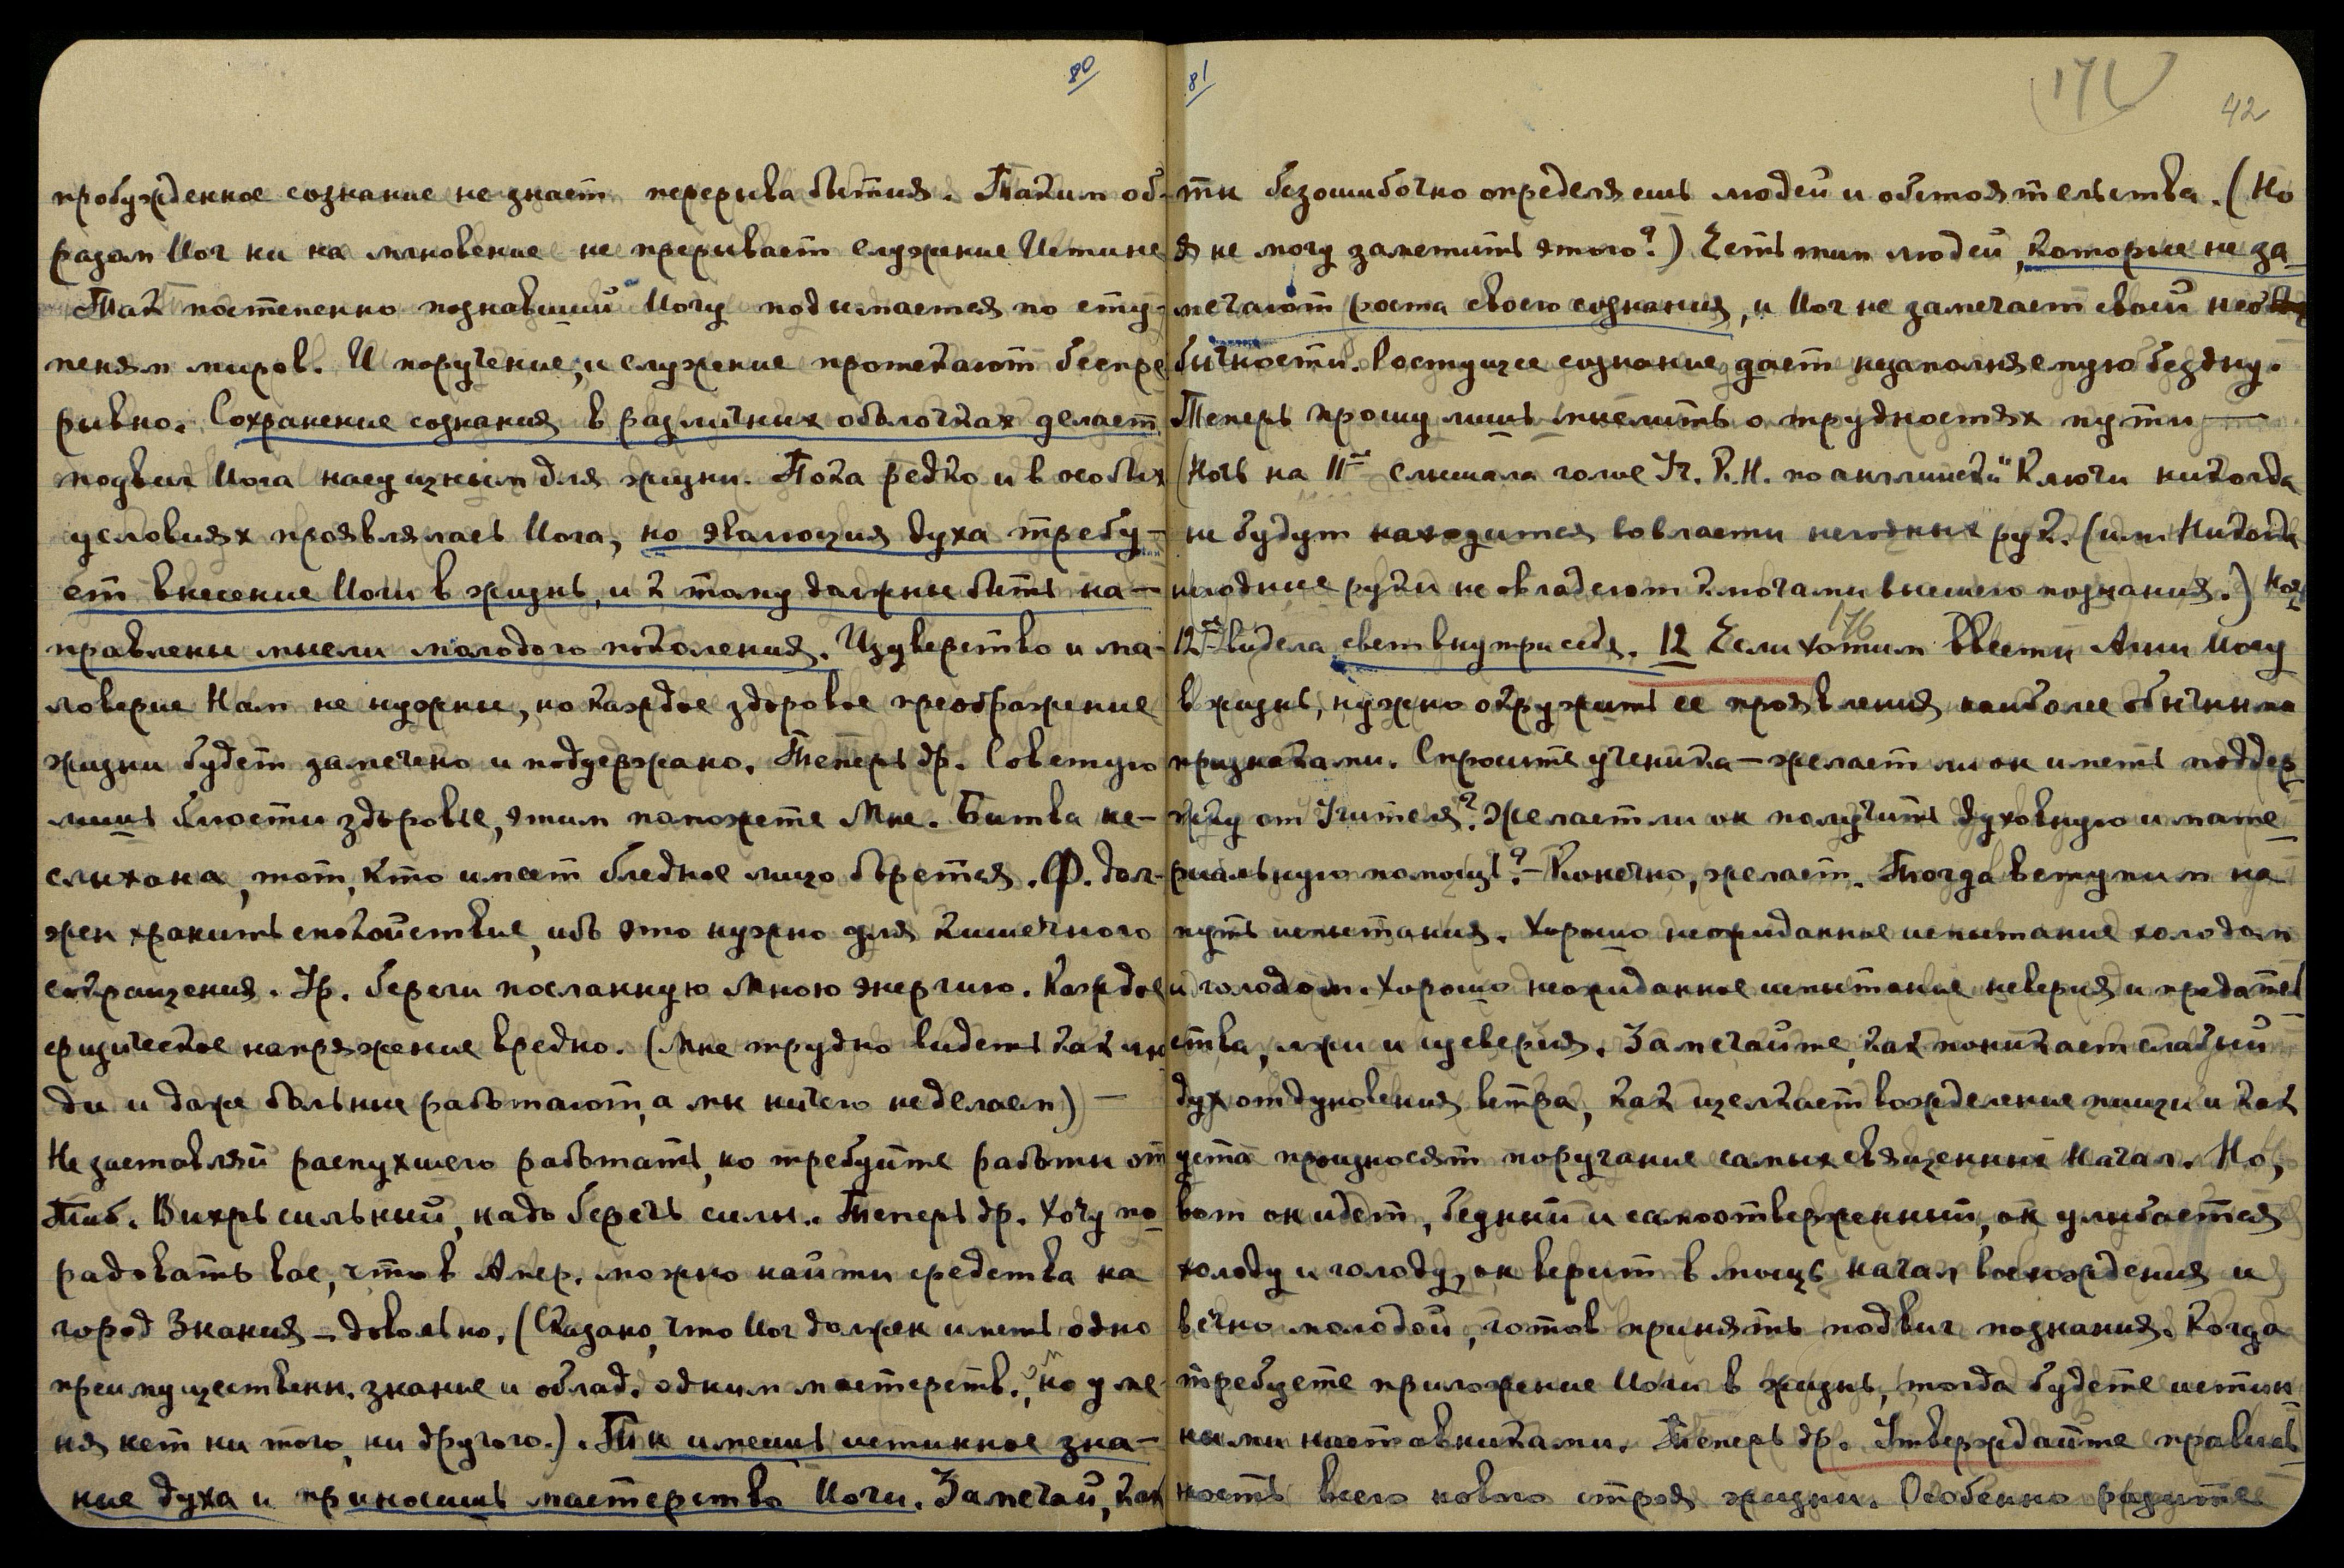 80
пробужденное сознание не знает перерыва бытия. Таким об-
разом Йог ни на мгновение не прерывает служение Истине
Так постепенно познавший Йогу подымается по сту-
пеням миров. И поручение, и служение протекают беспре
рывно. Сохранение сознания в различных оболочках делает
подвиг Йога насущным для жизни. Пока редко и в особых
условиях проявлялась Йога, но эволюция духа требу-
ет внесение Йоги в жизнь, и к тому должны быть на-
правлены мысли молодого поколения. Изуверство и ма-
ловерие Нам не нужны, но каждое здоровое преображение
жизни будет замечено и поддержано. Теперь др. Советую
лишь блюсти здоровье, этим поможете Мне. Битва не-
слыхана, тот, кто имеет бледное лицо борется. Ф. дол-
жен хранить спокойствие, ибо это нужно для кишечного
сокращения. Ур. береги посланную Мною энергию. Каждое
физическое напряжение вредно. (Мне трудно видеть как лю
ди и даже больные работают, а мы ничего не делаем) —
Не заставляй распухшего работать, но требуйте работы от
Тиб. Вихрь сильный, надо беречь силы. Теперь др. Хочу по
радовать вас, что в Амер. можно найти средства на
город Знания – довольно. (Сказано, что Йог должен иметь одно
преимуществен. знание и облад. одним мастерств., но у ме-
ня нет ни того, ни другого.). Ты имеешь истинное зна-
ние духа и приносишь мастерство Йоги. Замечай, как
81
171
42
ты безошибочно определяешь людей и обстоятельства. (Но
я не могу заметить этого?) Есть тип людей, которые не за
мечают роста своего сознания, и Йог не замечает своей необ
бычности. Растущее сознание дает незаполняемую бездну.
Теперь прошу лишь мыслить о трудностях пути —
(Ночь на 11ое слышала голос Уч. К.Н. по английски "Ключи никогда
не будут находится во власти негодных рук. (или Никогда
негодные руки не овладеют ключами высшего познания.) Ночь
12ое видела свет внутри себя. 12 Если хотим ввести Агни Йогу
176
в жизнь, нужно окружить ее проявления наиболее обычными
признаками. Спросите ученика – желает ли он иметь поддер
жку от Учителя? Желает ли он получить духовную и мате
риальную помощь? – Конечно, желает. Тогда вступим на
путь испытания. Хорошо неожиданное испытание холодом
и голодом. Хорошо неожиданное испытание неверия и предатель
ства, лжи и суеверия. Замечайте, как поникает слабый
дух от дуновения ветра, как щелкает вожделение пищи и как
уста произносят поругание самых священных Начал. Но,
вот он идет, бедный и самоотверженный, он улыбается
холоду и голоду, он верит в мощь начал восхождения и
вечно молодой, готов принять подвиг познания. Когда
требуете приложение Йоги в жизнь, тогда будете истин
ными наставниками. Теперь др. Утверждайте правиль
ность всего нового строя жизни. Особенно разите